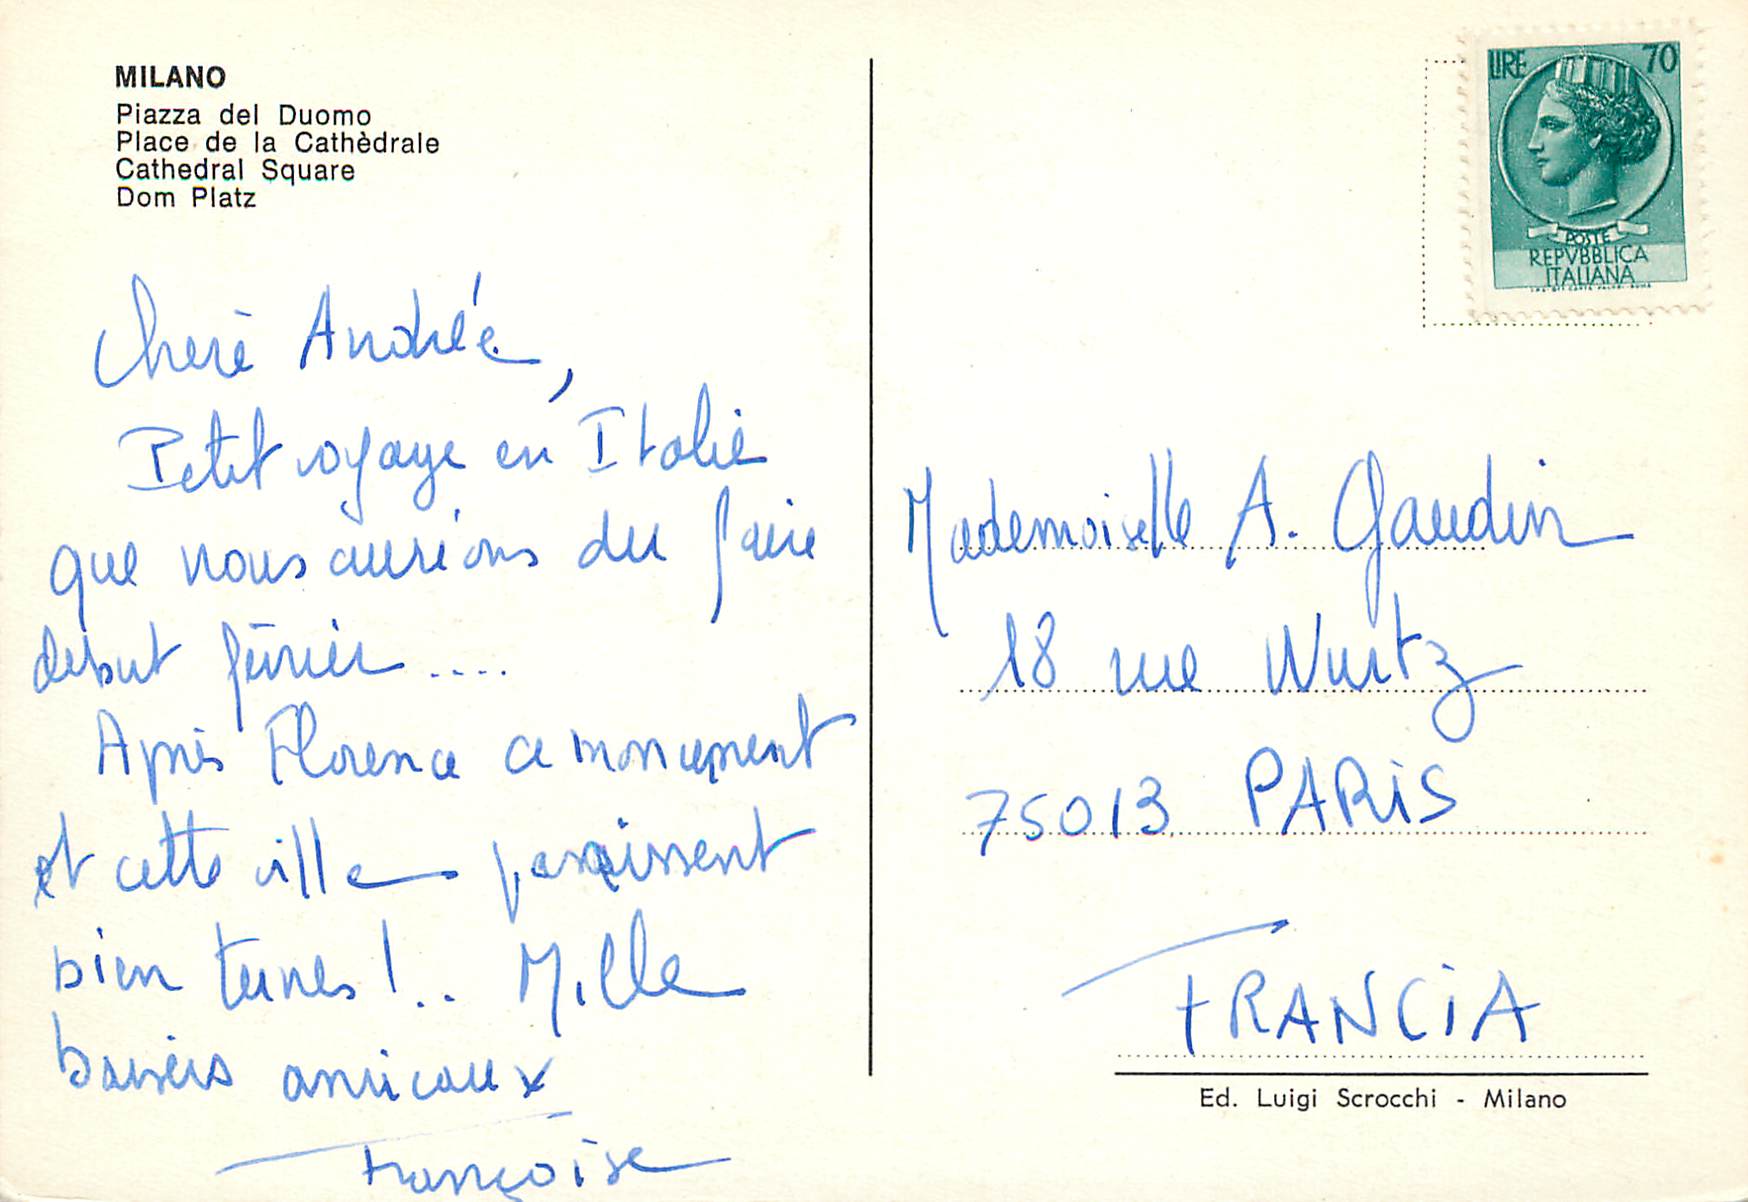 MILANO
Piazza del Duomo
Place de la Cathèdrale
Cathedral Square
Dom Platz
Chère Andrée,
Petit voyage en Italie
que nous aurions du faire
debut février ....
Après Florence ce monument
et cette ville paraissent
bien ternes !.. Mille
baisers amicaux
Françoise
LIRE 70
POSTE
REPVBBLICA
ITALIANA
Mademoiselle A. Gaudin
18 rue Wurtz
75013 PARIS
FRANCIA
Ed. Luigi Scrocchi - Milano